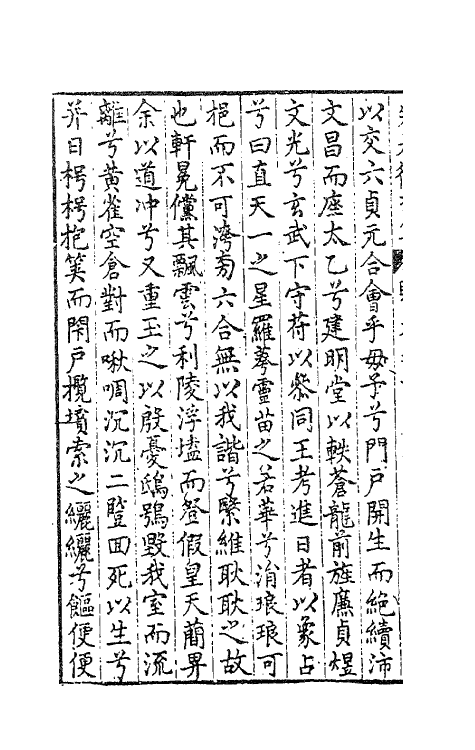 以交六貞元合會乎毋予兮門戶開生而絕續沛
文昌而座太乙兮建明堂以軼蒼龍前旌廉貞煜
文光兮玄武下守苻以叅同王考進日者以象占
兮曰直天一之星羅蓦靈苗之若華兮淯琅琅可
挹而不可濟匊六合無以我諧兮緊維耿耿之故
也軒冕儻其飄雲兮利陵浮壒而登假皇天蕳畀
余以道冲兮又重玉之以殷憂鴟鴞毀我室而流
離兮黄雀空倉對而啾啁沉沉二曁回死以生兮
茾日枵枵抱筴而閇戶攬墳索之纚纚兮饇便便